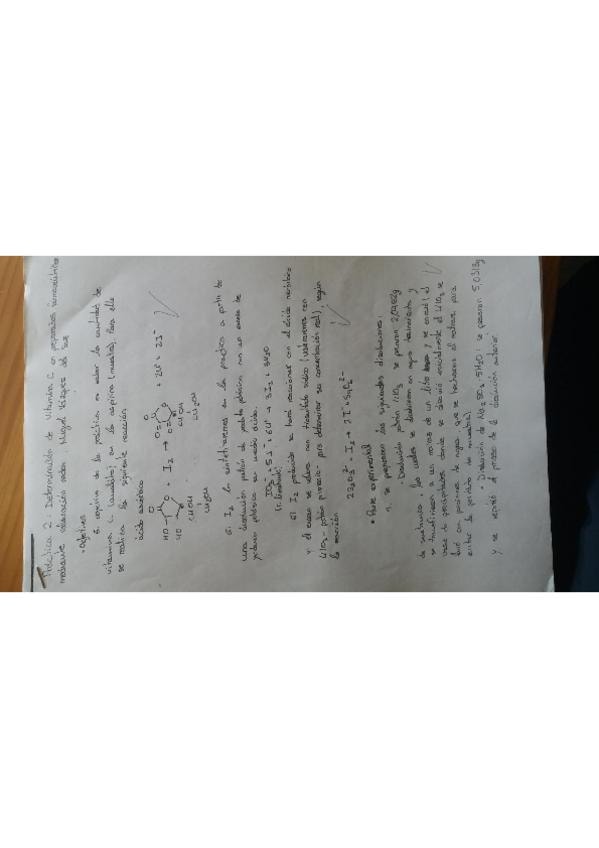 Práctica 2: Determinación de Vitamina C en preparados farmacéuticos
mediante valoración redox. Miguel Vázquez del
• Objetivo
El objetivo de la práctica es saber la cantidad de
vitamina C (analito) en la aspirina (muestra). Para ello
se realiza la siguiente reacción
ácido ascórbico
+ I2 → + 2H+ + 2I-
El I2 lo sintetizaremos en la práctica a partir de
una disolución patrón de yodato potásico con un exceso de
yoduro potásico en medio ácido.
IO3- + 5I- + 6H+ → 3I2 + 3H2O
El I2 producido se hará reaccionar con el ácido ascórbico
y el exceso se valora con tiosulfato sódico (valoraremos con
KIO3 - patrón primario - para determinar su concentración real), según
la reacción
2S2O3 2- + I2 → 2I- + S4O6 2-
• Parte experimental
1. Se preparan las siguientes disoluciones:
• Disolución patrón KIO3: se pesaron 2,0462g
de sustancia los cuales se disolvieron en agua
se transfirieron a un matraz de un litro y se enrasó (el
vaso de precipitados donde se disolvió inicialmente el KIO3 se
lavó con porciones de agua que se echaron al matraz, para
evitar la pérdida de muestra).
• Disolución de Na2S2O3·5H2O: se pesaron 5,0313g
y se repitió el proceso de la disolución anterior.